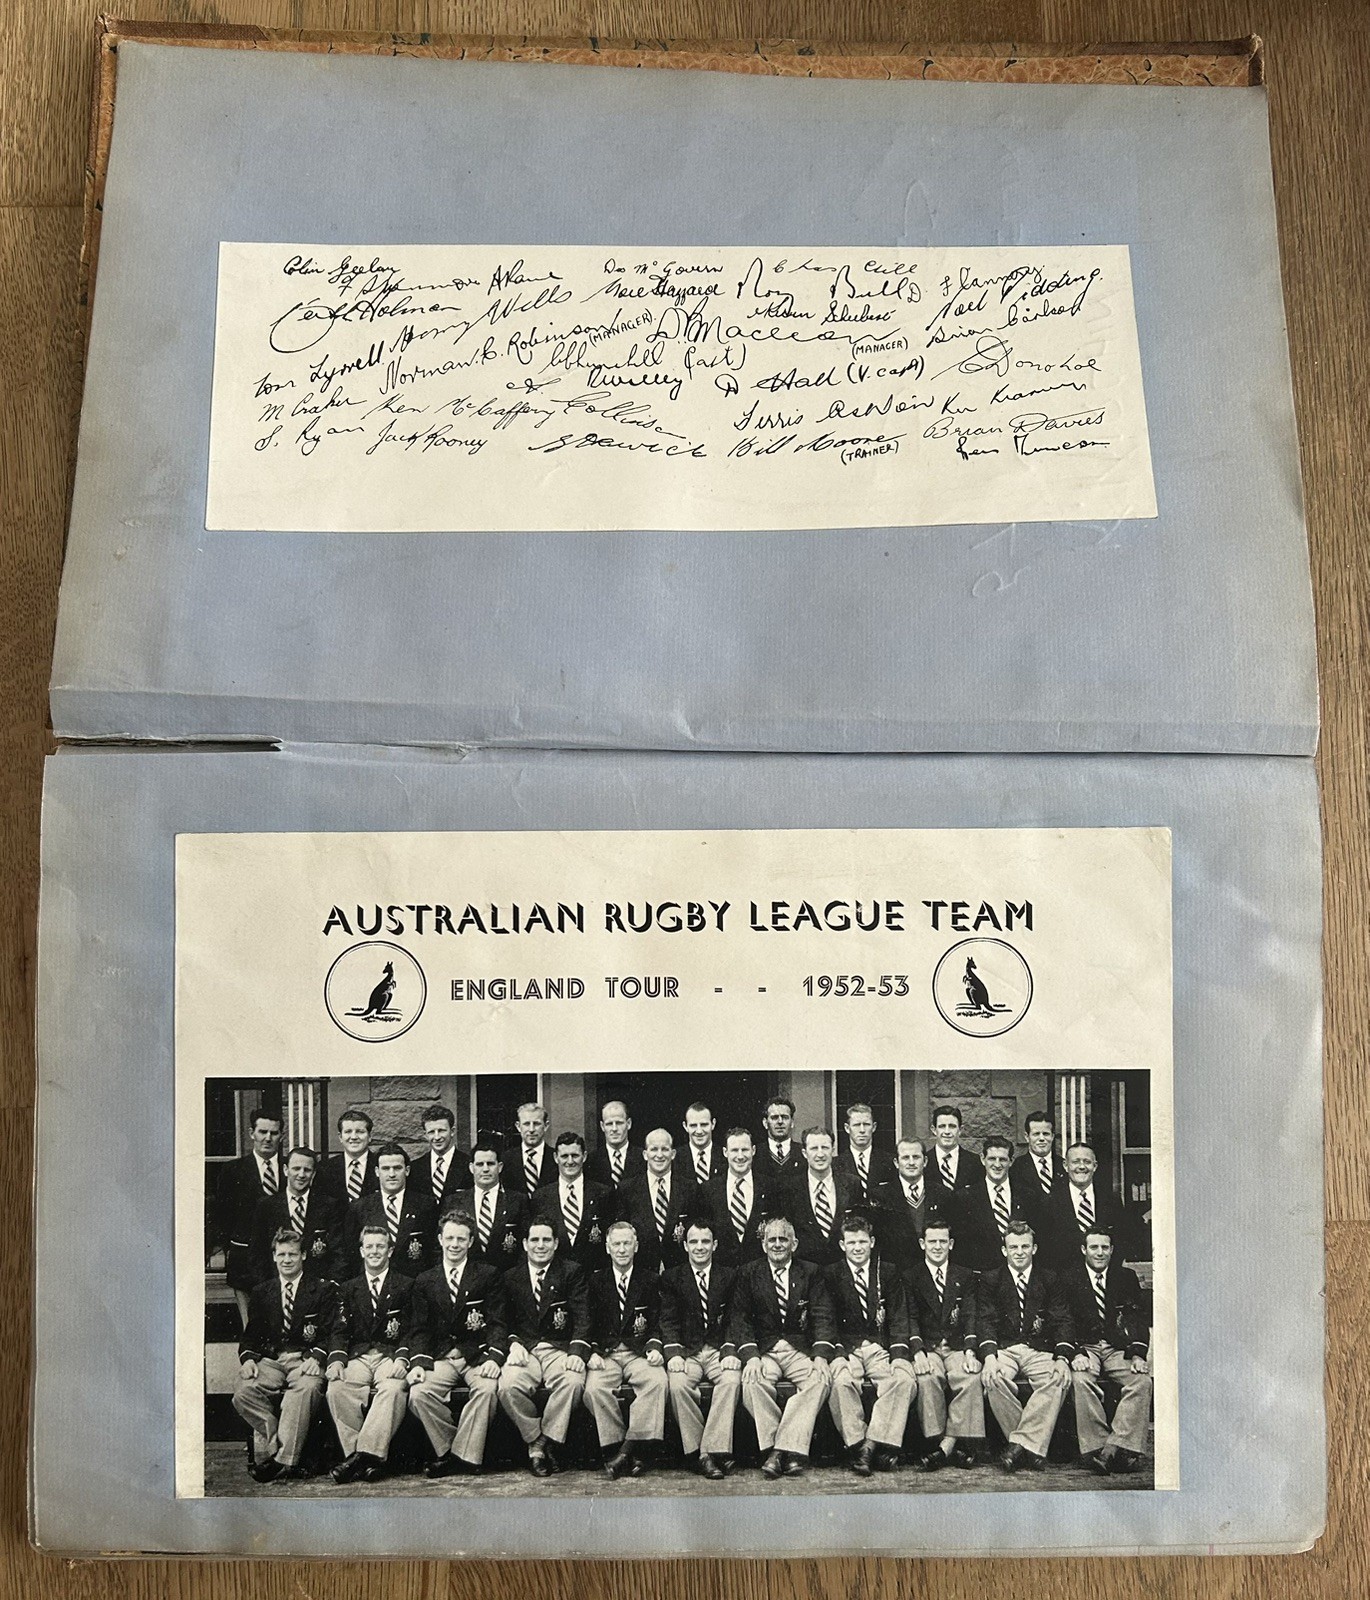 Colin Geelan
F Stanmore A Paul
Des McGovern
Chas Gill
F Flannery
Keith Holman
Harry Wells
Noel Hazzard
Roy Bull
D
Noel Pidding.
Kevin Schubert
Tom Tyrrell
Norman. C. Robinson (MANAGER).
D. McLean (MANAGER)
Brian Carlson
C Churchill (capt)
M Crocker
Ken McCaffery
Collins
D Hall (V. capt)
C Donohoe
Ferris Ashton
Ken Kearney
D. Ryan
Jack Rooney
Bill Moore (TRAINER)
Brian Davies
AUSTRALIAN RUGBY LEAGUE TEAM
ENGLAND TOUR - - 1952-53